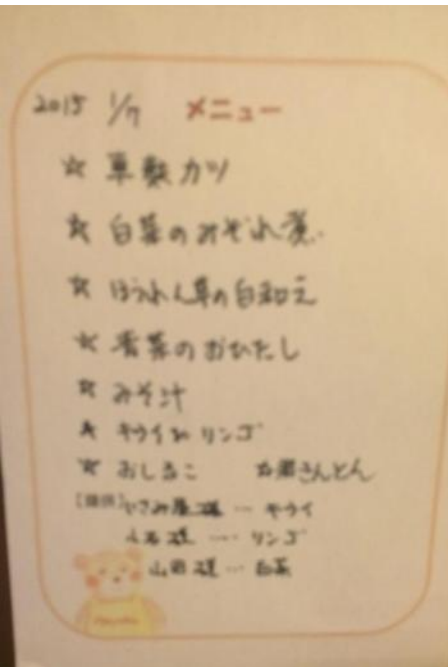 2015 1/7 メニュー
☆ 草鞋カツ
☆ 白菜のみぞれ煮
☆ ほうれん草の白和え
☆ 青菜のおひたし
☆ みそ汁
☆ キウイ リンゴ
☆ おしるこ ☆栗きんとん
【提供】 … キウイ
様 … リンゴ
山田様 … 白菜